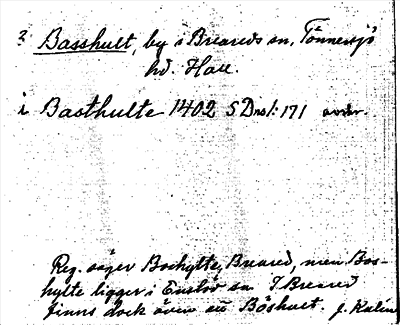 ? Basshult, by i Breareds sn, Tönnersjö
hd. Hall.
i Basthulte 1402 SDns1:171 avskr.
Reg. säger Boshytte, Breared, men Bos-
hylte ligger i Enslöv sn. I Breared
finns dock även ett Böshult. J. Kalén